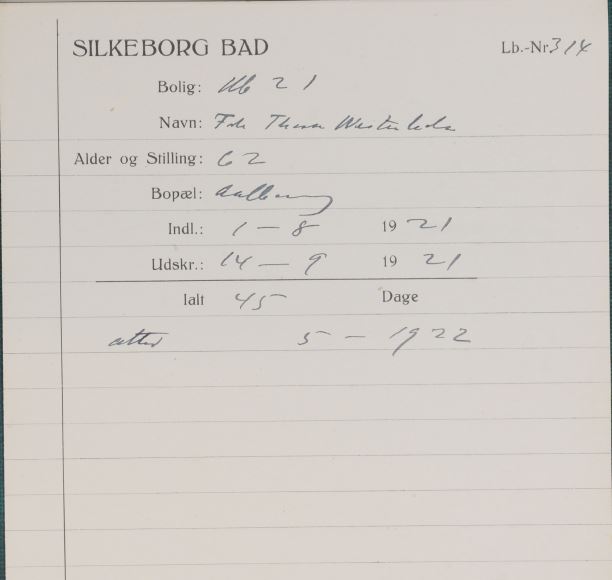 SILKEBORG BAD Lb.-Nr 314
Bolig: 21
Navn: Thora
Alder og Stilling: 62
Bopæl: Aalborg
Indl.: 1 - 8 19 21
Udskr.: 14 - 9 19 21
Ialt 45 Dage
atter 5 - 1922